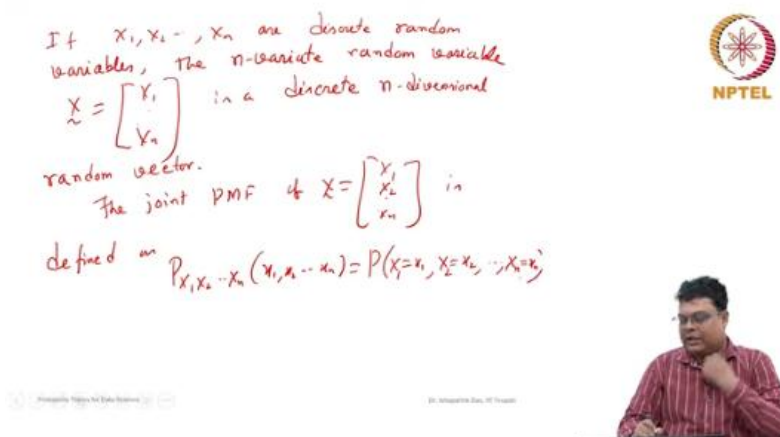 If X₁, X₂ .. , Xₙ are discrete random
variables, The n-variate random variable
X = [X₁ . Xₙ] is a discrete n-dimensional
random vector.
The joint PMF of X = [X₁ X₂ . Xₙ] is
defined as P_{X₁X₂...Xₙ}(x₁,x₂...xₙ) = P(X₁=x₁, X₂=x₂, ..., Xₙ=xₙ)
NPTEL
Probability Theory for Data Science